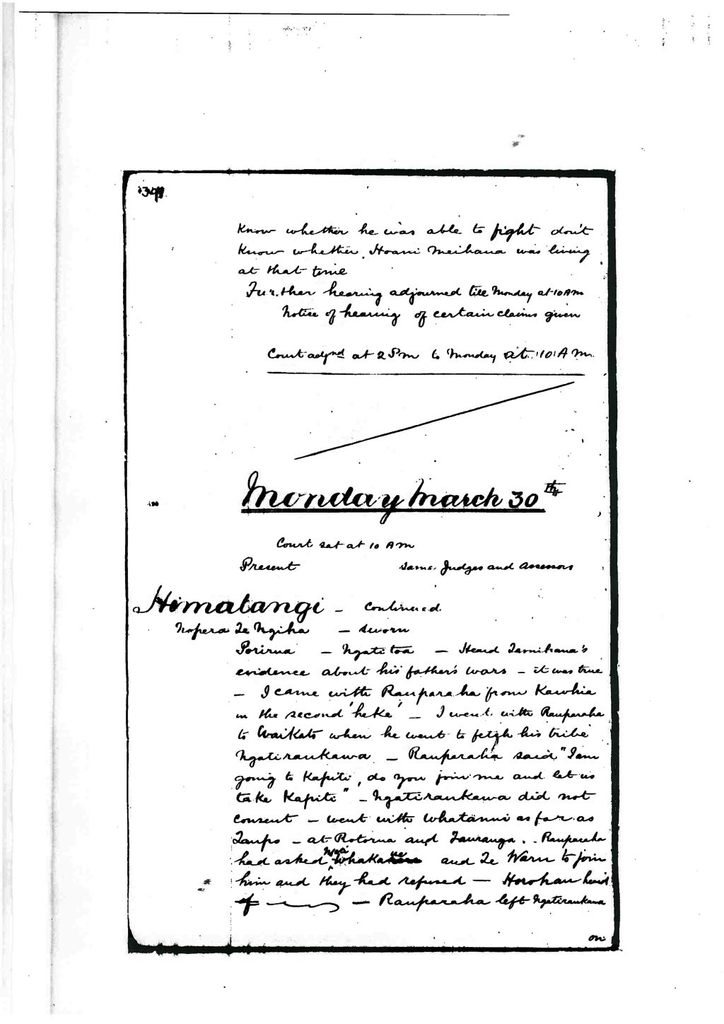 Know whether he was able to fight don't
Know whether Hoani Meihana was living
at that time
Further hearing adjourned till Monday at 10 AM
Notice of hearing of certain claims given
Court adjnd at 2 Pm to Monday at 10 A m.
Monday March 30th
Court sat at 10 Am
Present same Judges and Assessors
Himatangi – Continued
Nopera Te Ngiha – sworn
Porirua – Ngatitoa – Heard Tamihana's
evidence about his father's wars – it was true
– I came with Rauparaha from Kawhia
in the second 'heke' – I went with Rauparaha
to Waikato when he went to fetch his tribe
Ngatiraukawa – Rauparaha said "I am
going to Kapiti, do you join me and let us
take Kapiti" – Ngatiraukawa did not
consent – went with Whatanui as far as
Taupo – at Rotorua and Tauranga . . Rauparaha
had asked Nga and Te Waru to join
him and they had refused –
of – Rauparaha left Ngatiraukawa
on